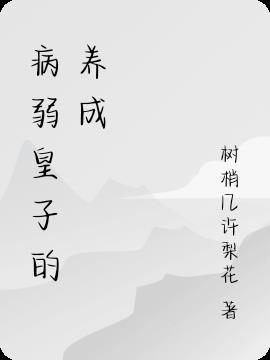 病弱皇子的
养成
树梢几许梨花 著